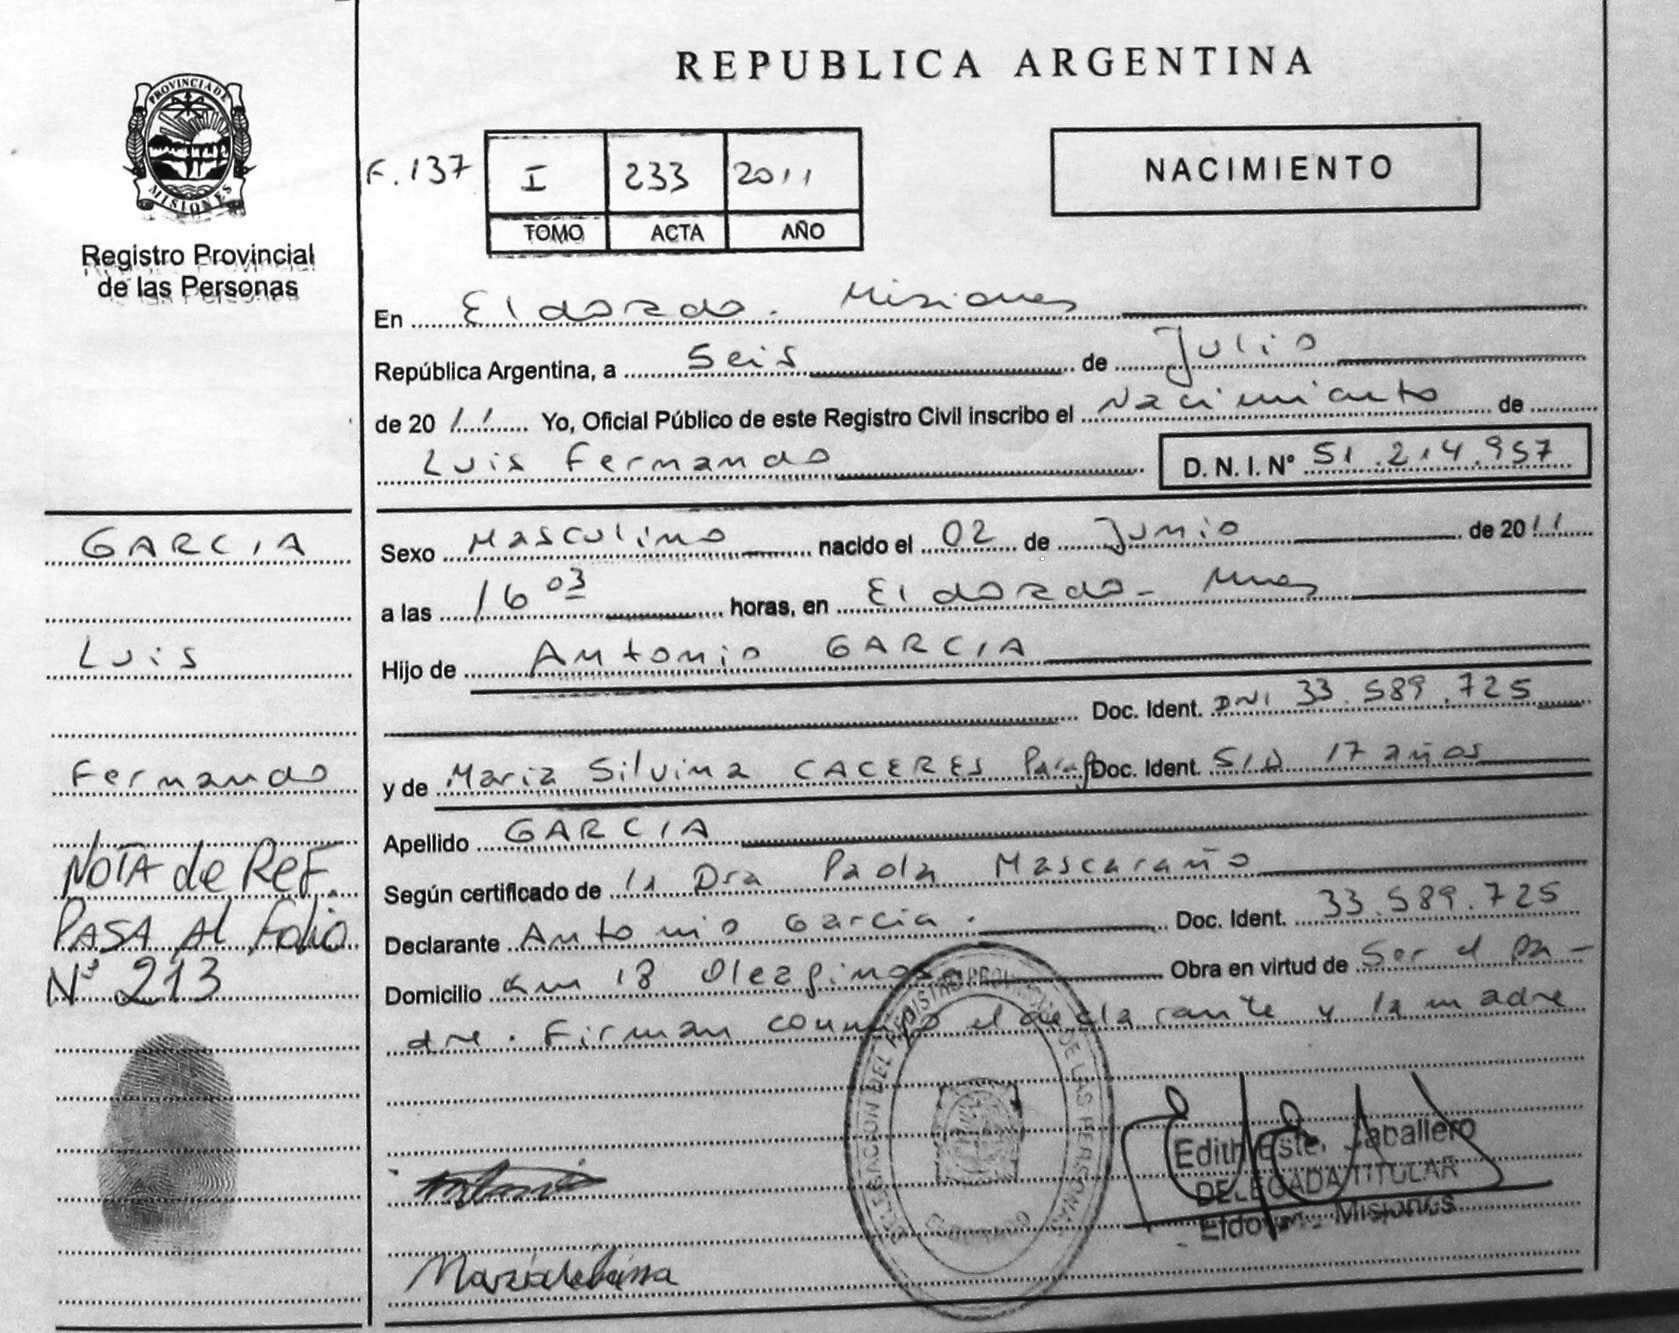 PROVINCIA DE
MISIONES
Registro Provincial
de las Personas
REPUBLICA ARGENTINA
F. 137
I 233 2011
TOMO ACTA AÑO
NACIMIENTO
En Eldorado. Misiones
República Argentina, a Seis de Julio
de 2011 Yo, Oficial Público de este Registro Civil inscribo el Nacimiento de
Luis Fernando D. N. I. Nº 51.214.957
GARCIA
Luis
Fernando
NOTA de REF.
PASA Al folio
Nº 213
Sexo Masculino nacido el 02 de Junio de 2011
a las 16 03 horas, en Eldorado - Mnes
Hijo de Antonio GARCIA
Doc. Ident. DNI 33.589.725
y de Maria Silvina CACERES Doc. Ident. S/D 17 años
Apellido GARCIA
Según certificado de la Dra Paola Mascaraño
Declarante Antonio Garcia. Doc. Ident. 33.589.725
Domicilio Km 18 Obra en virtud de Ser el pa-
dre. Firman conmigo el declarante y la madre
DELEGACION DEL REGISTRO PROVINCIAL DE LAS PERSONAS
ELDORADO
Edith Este. Caballero
DELEGADA TITULAR
Eldorado - Misiones